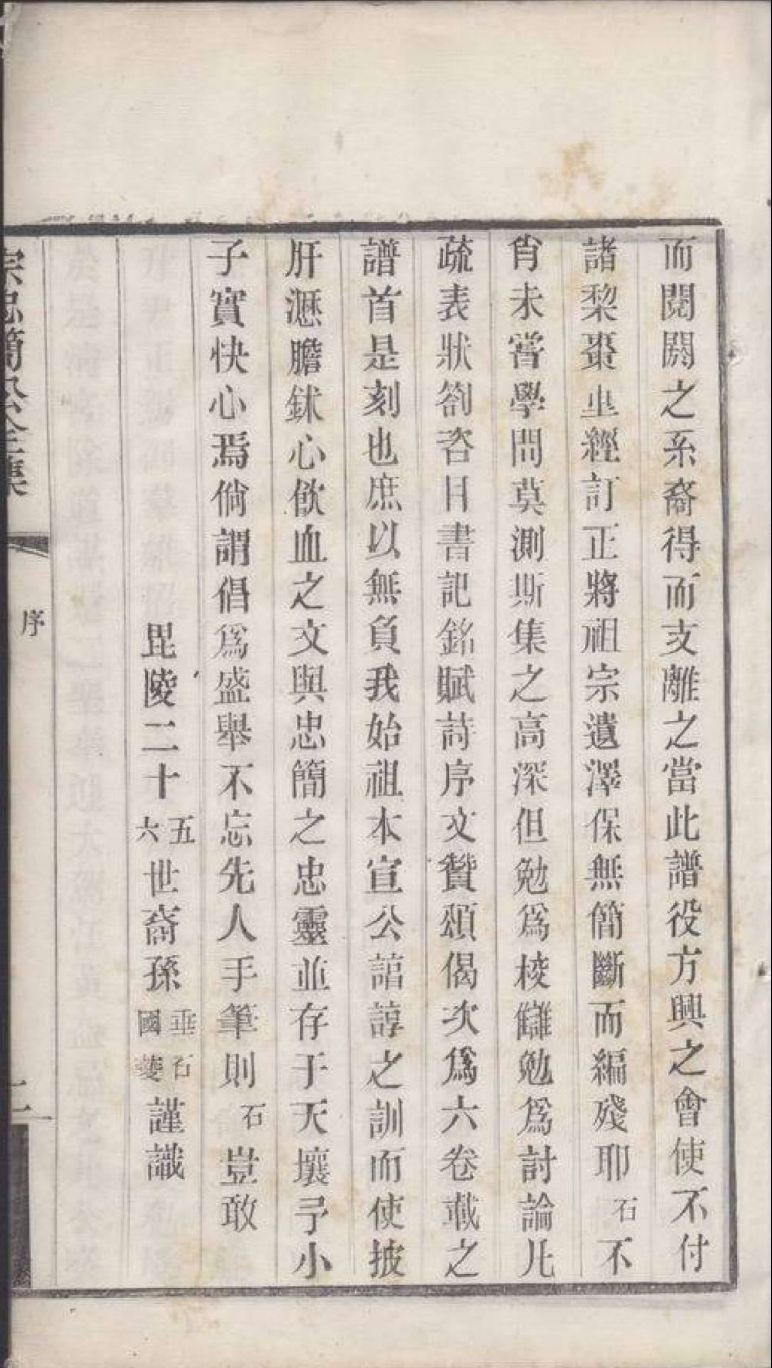 而閱閥之系裔得而支離之當此譜役方興之會使不付
諸棃棗亟經訂正將祖宗遺澤保無簡斷而編殘耶石不
肖未嘗學問莫測斯集之高深但勉爲校讎勉爲討論凡
疏表狀劄咨目書記銘賦詩序文贊頌偈次爲六卷載之
譜首是刻也庶以無負我始祖本宣公諄諄之訓而使披
肝瀝膽鉥心飲血之文與忠簡之忠靈並存于天壤予小
子實快心焉倘謂倡爲盛舉不忘先人手筆則石豈敢
毘陵二十五六世裔孫垂石國蔆謹識
宗忠簡公全集
序
二